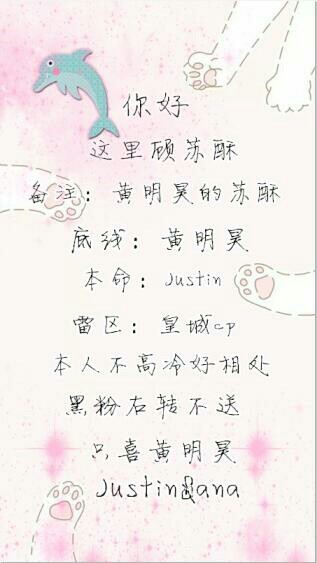 你好
这里顾苏酥
备注：黄明昊的苏酥
底线：黄明昊
本命：Justin
雷区：皇城cp
本人不高冷好相处
黑粉右转不送
只喜黄明昊
Justin